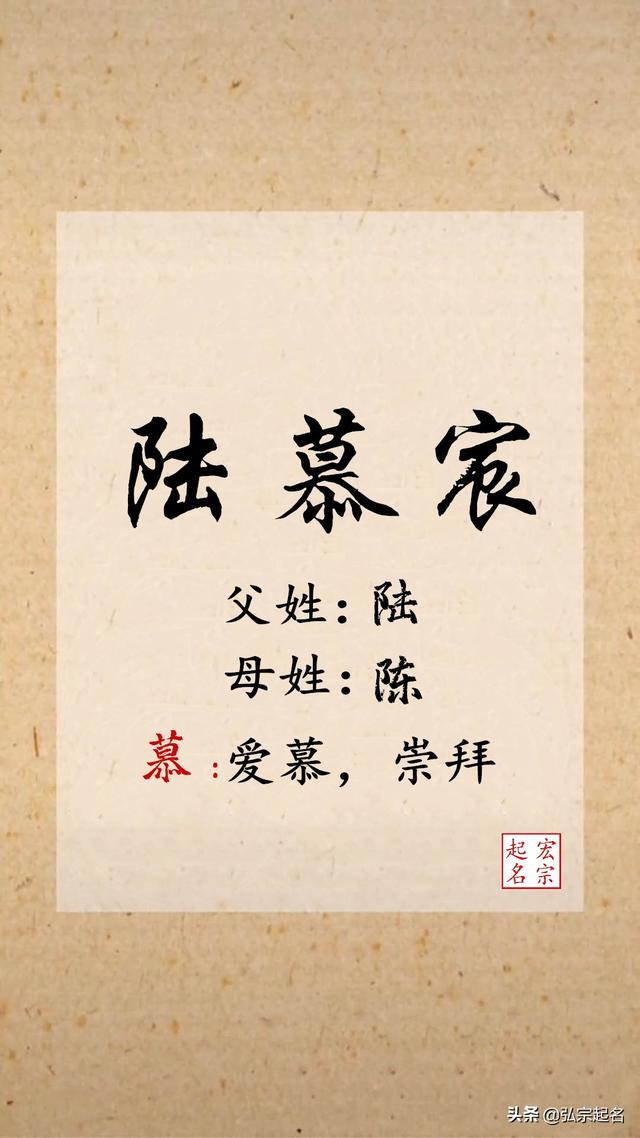 陆慕宸
父姓：陆
母姓：陈
慕：爱慕，崇拜
宏宗起名
头条 @弘宗起名